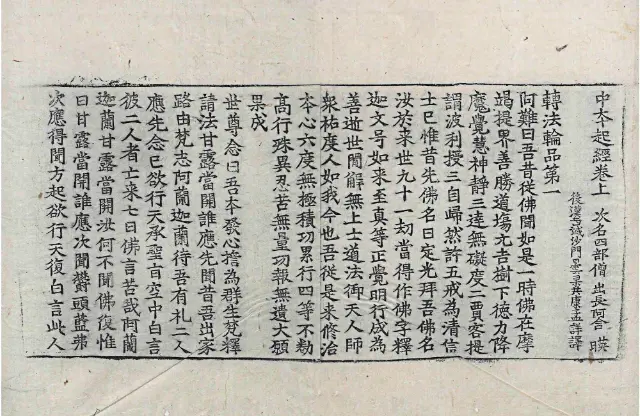 中本起經卷上 次名四部僧 出長阿含 暎
後漢西域沙門曇果共康孟詳譯
轉法輪品第一
阿難曰吾昔從佛聞如是一時佛在摩
竭提界善勝道塲元吉樹下德力降
魔覺慧神靜三達無礙度二賈客提
謂波利授三自歸然許五戒為清信
士已惟昔先佛名曰定光拜吾佛名
汝於來世九十一劫當得作佛字釋
迦文号如来至真等正覺明行成為
善逝世間解無上士道法御天人師
衆祐度人如我今也吾從是来修治
本心六度無極積功累行四等不勌
髙行殊異忍苦無量功報無遺大願
果成
世尊念曰吾本發心擔為群生梵釋
請法甘露當開誰應先聞昔吾出家
路由梵志阿蘭迦蘭待吾有礼二人
應先念已欲行天承聖旨空中白言
彼二人者亡来七日佛言苦哉阿蘭
迦蘭甘露當開汝何不聞佛復惟
曰甘露當開誰應次聞欝頭藍弗
次應得聞方起欲行天復白言此人